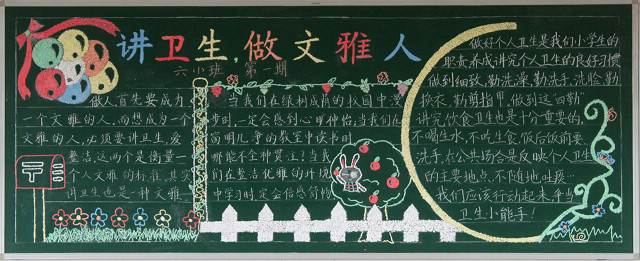 讲卫生,做文雅人
六小班 第一期
做人首先要成为
一个文雅的人,而想成为一个
文雅的人,必须要讲卫生,爱
整洁,这两个是衡量一
个人文雅的标准,其实
讲卫生也是一种文雅
当我们在绿树成荫的校园中漫
步时,一定会感到心旷神怡,当我们在
窗明几净的教室中读书时
哪能不全神贯注?当我
们在整洁优雅的环境
中学习时定会倍感舒畅
做好个人卫生是我们小学生的
职责养成讲究个人卫生的良好习惯
做到细致,勤洗澡,勤洗手,洗脸,勤
换衣,勤剪指甲,做到这"四勤"
讲究饮食卫生也是十分重要的,
不喝生水,不吃生食,饭后饭前要
洗手,在公共场合是反映个人卫生
的主要地点,不随地吐痰…
我们应该行动起来,争当
卫生小能手!